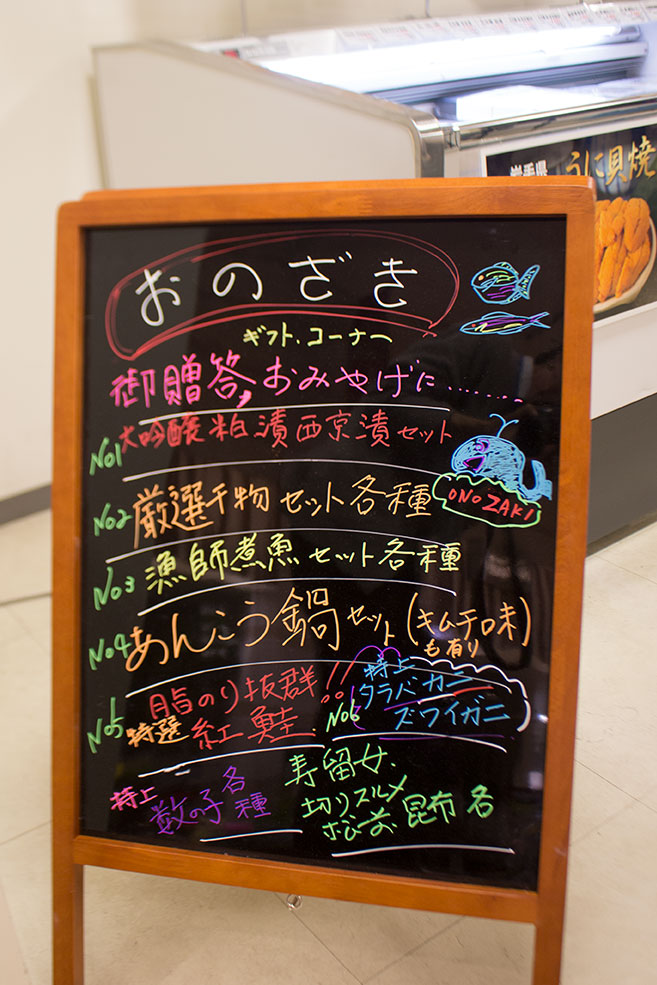 岩手県 うに貝焼
おのざき
ギフト.コーナー
御贈答,おみやげに........
No1 大吟醸粕漬西京漬セット
ONOZAKI
No2 厳選干物セット各種
No3 漁師煮魚セット各種
No4 あんこう鍋セット(キムチ味)
も有り
No5 脂のり抜群!!
特選 紅鮭.
No6 特上
タラバカニ
ズワイガニ
特上 数の子各種
寿留女.
切りスルメ
松前 昆布 各